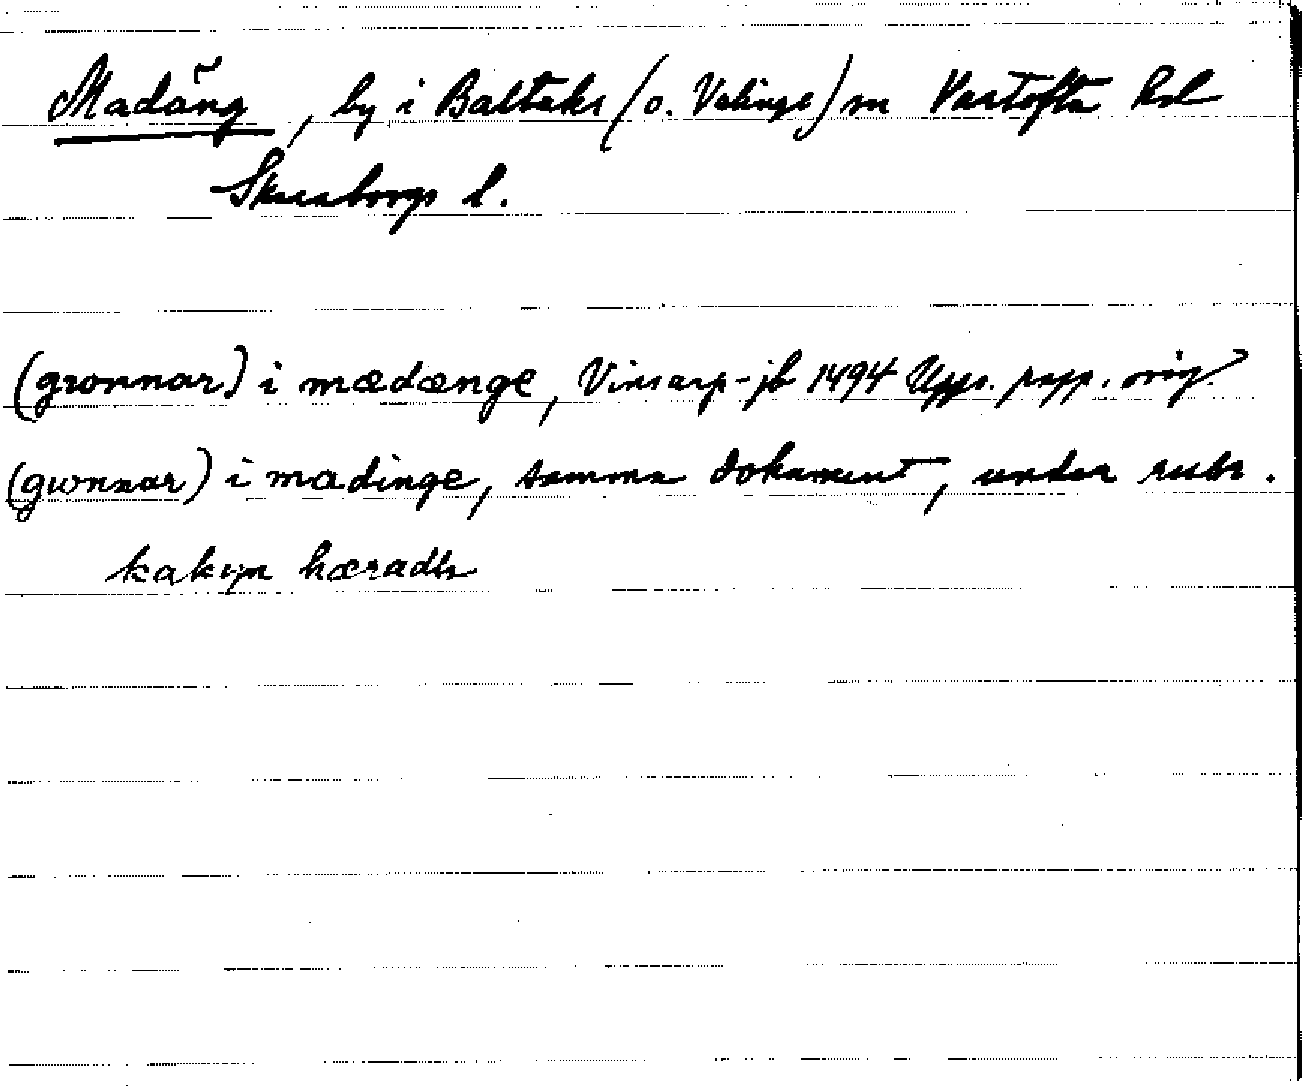 Madäng, by i Baltaks (o. Velinge) sn Vartofta hd
Skaraborgs l.
(gronnar) i mædænge, Vinsarp-jb 1494 Upps. papp. orig.
(gwnnar) i madinge, samma dokument, under rubr.
kakyn hæradh